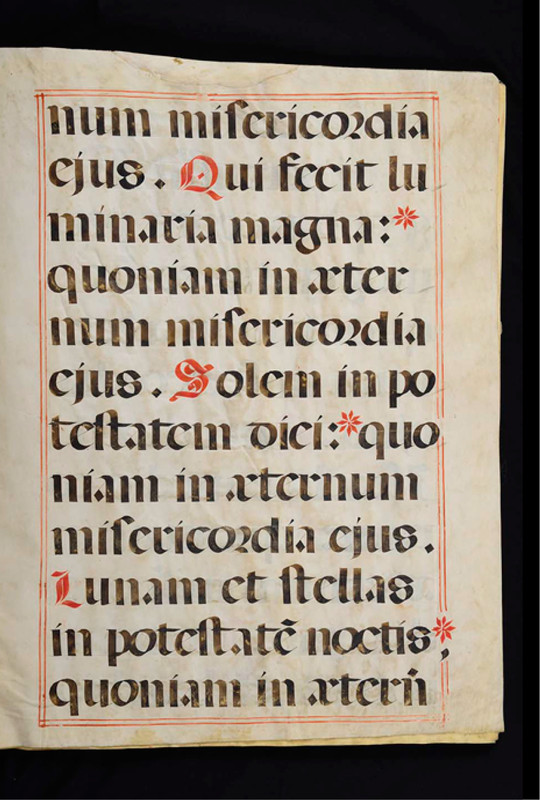 num miſericordia
ejus. Qui fecit lu
minaria magna:*
quoniam in æter
num miſericordia
ejus. Solem in po
teſtatem diei:*quo
niam in æternum
miſericordia ejus.
Lunam et ſtellas
in poteſtatē noctis*,
quoniam in æterñ